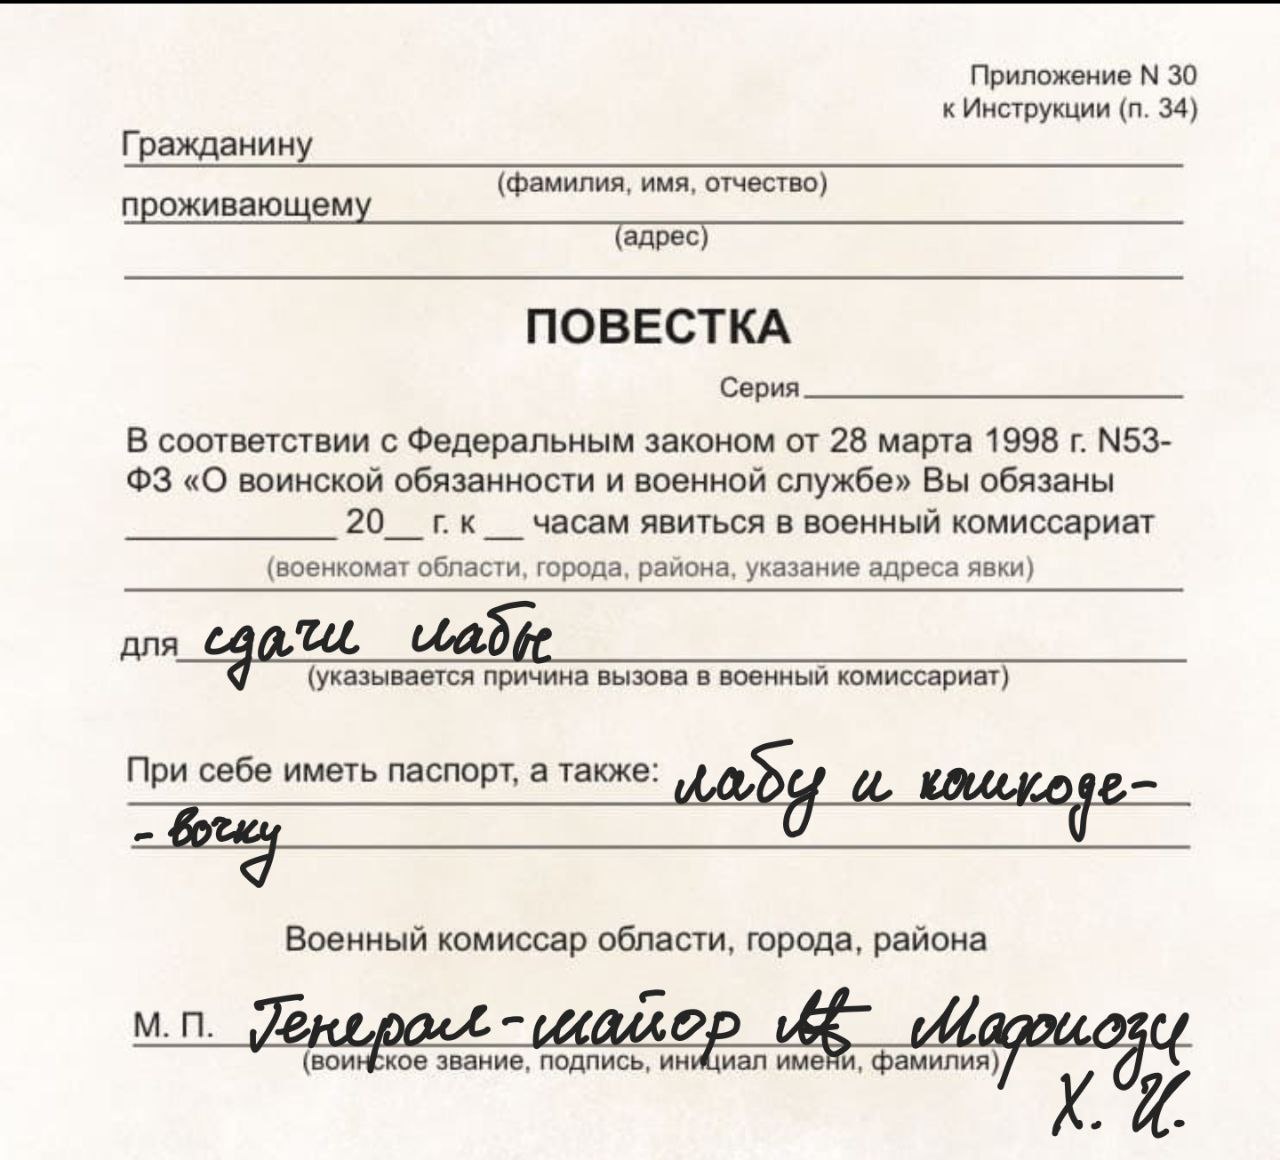 Приложение N 30
к Инструкции (п. 34)
Гражданину
(фамилия, имя, отчество)
проживающему
(адрес)
ПОВЕСТКА
Серия
В соответствии с Федеральным законом от 28 марта 1998 г. N53-
ФЗ «О воинской обязанности и военной службе» Вы обязаны
____________ 20__ г. к __ часам явиться в военный комиссариат
(военкомат области, города, района, указание адреса явки)
для сдачи лабы
(указывается причина вызова в военный комиссариат)
При себе иметь паспорт, а также: лабу и кошкоде-
-вочку
Военный комиссар области, города, района
М. П. Генерал-майор Мафиози
(воинское звание, подпись, инициал имени, фамилия)
Х. И.